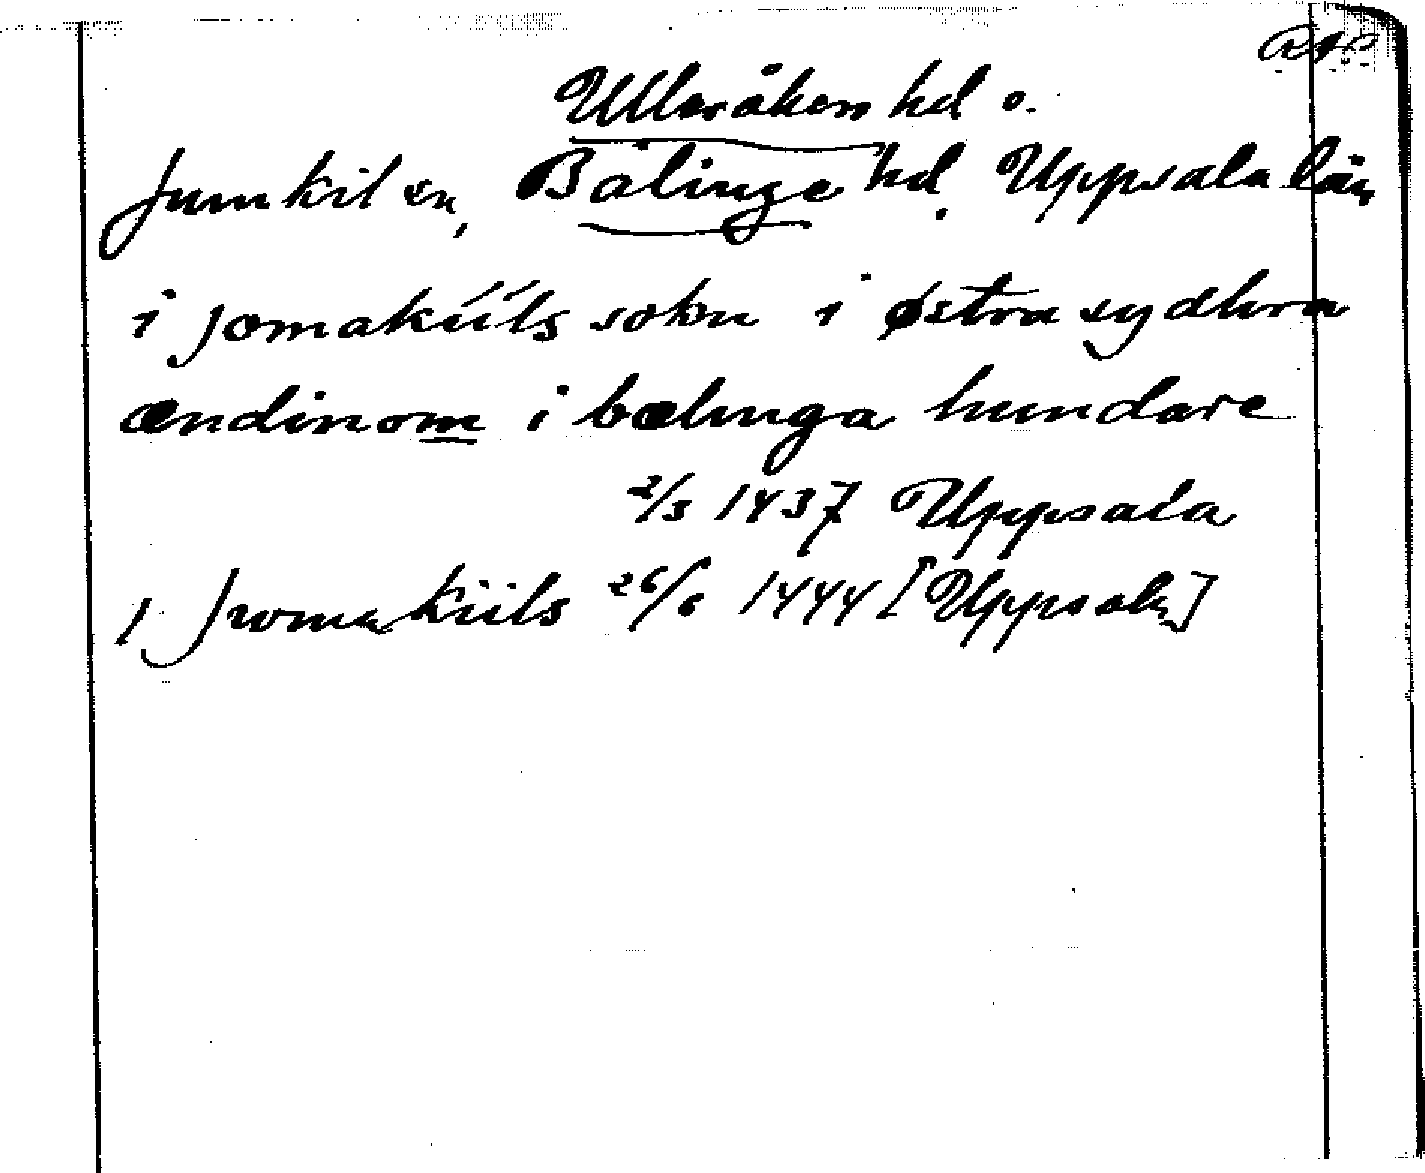 Ulleråkers hd o.
Jumkil sn, Bälinge hd. Uppsala län
i jomakííls sokn i østra sydhra
ændinom i bælinga hundare
2/3 1437 Uppsala
I Jwmakiils 26/6 1444 [Uppsala]